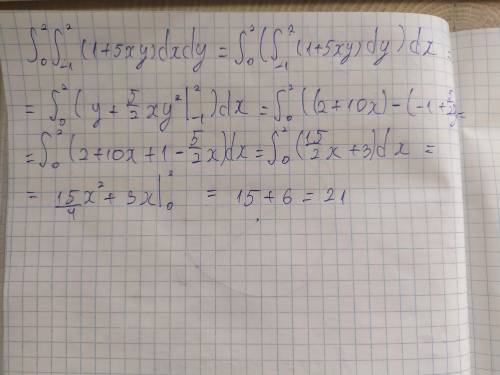 ∫₀² ∫₋₁² (1+5xy)dxdy = ∫₀² (∫₋₁² (1+5xy)dy)dx =
= ∫₀² (y + 5/2 xy² |₋₁²)dx = ∫₀² ((2+10x) - (-1 + 5/2
= ∫₀² (2+10x+1 - 5/2 x)dx = ∫₀² (15/2 x + 3)dx =
= 15/4 x² + 3x |₀² = 15 + 6 = 21